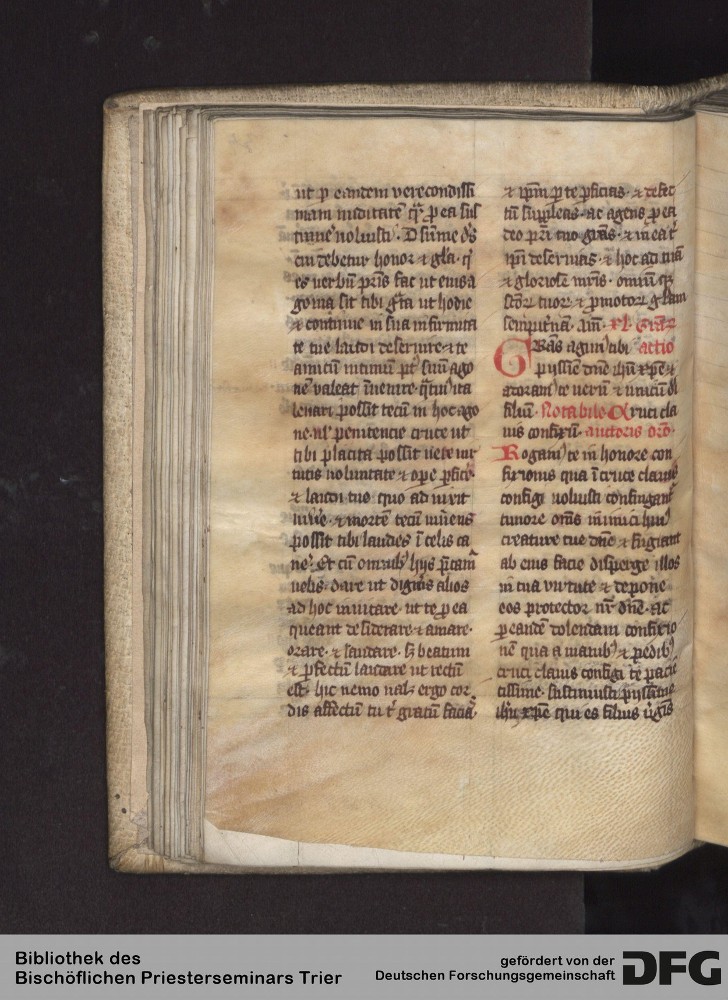 ut p eandem verecondissi
mam nuditatē q̄ȝ p ea sus
tinuē noluisti. D sūme dꝰs
cui debetur honor ⁊ gl̄a. q̇
es uerbū pr̄is fac ut eius a
gonia sit tibi gr̄a ut hodie
⁊ continue in sua infirmita
te tue laudi deseruire ⁊ te
amicū intimū pꝰ suū ago
nē valeat īuenire.
lenari possit tecū in hoc ago
ne. ul̓ penitencie cruce ut
tibi placita possit uele uir
tutis uoluntate ⁊ ope pfic̓e.
⁊ laudi tuo quo ad uixit
uiuē. ⁊ mortē tecū iuueniens
possit tibi laudes ī celis ca
nē. Et cū omnibꝰ hijs p̄tam̄
uelis. dare ut dignus alios
ad hoc inuitare. ut te p ea
queant desiderare ⁊ amare.
orare. ⁊ laudare. sȝ beatum
⁊ pfectū laudare ut rectū
est. hic nemo ualȝ ergo cor
dis affectū tu t̓ gratū facia.
⁊ ip̄m p te pficias. ⁊ defec
tū suppleas. ac agens p ea
deo pr̄i tuo gr̄as. ⁊ in ea t̓
ip̄i deseruias. ⁊ hoc ad
⁊ gloriosē uiris. omniū qȝ
sc̄oꝝ tuoꝝ ⁊ pmotoꝝ gl̄am
sempit̓nā. Am̄. xl. Gr̄aꝝ
GRās agimꝰ tibi actio
piissīe dn̄e ih̄u xp̄e ⁊
adoramꝰ te uerū ⁊ unicū di
filiū. Notabile. Cruci cla
uis confixū. auctoris or̄o.
Rogamꝰ te in honore con
fixionis qua ī cruce clauis
configi uoluisti configant̓
timore om̄s inimici huiꝰ
creature tue dn̄e ⁊ fugiant
ab eius facie disperge illos
in tua virtute ⁊ depone
eos protector nr̄ dn̄e. ac
p eandē dolendam confixio
nē qua a manibꝰ ⁊ pedibꝰ
cruci clauis configi te pacie
tissime. sustinuisti piissime
ih̄u xp̄e qui es filius ūgīs
Bibliothek des
Bischöflichen Priesterseminars Trier
gefördert von der
Deutschen Forschungsgemeinschaft
DFG